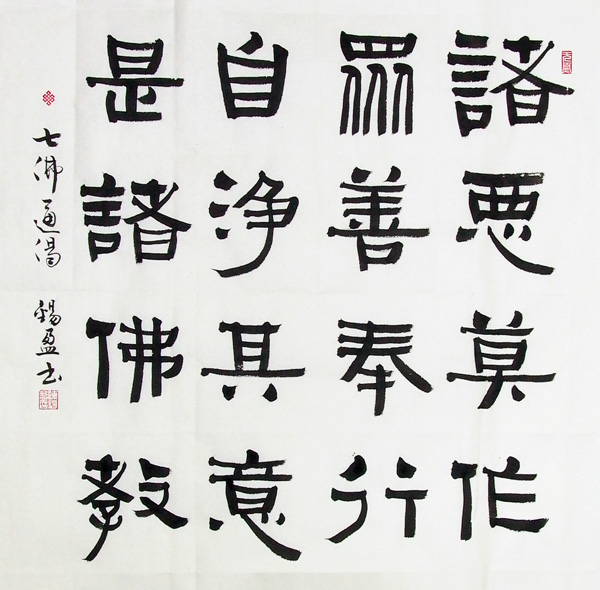 諸悪莫作
眾善奉行
自浄其意
是諸佛教
七佛通偈 錫盈书